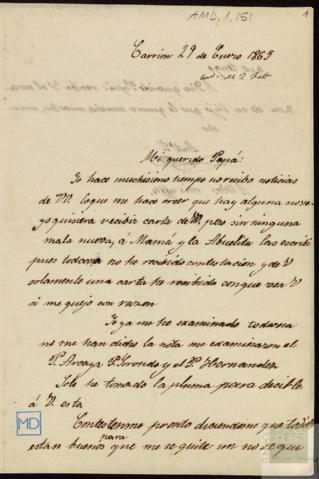 AMD,1,151
1
Carrion 29 de Enero 1865
Mi querido Papá:
Yo hace muchisimo tiempo no recibo noticias
de VV lo que me hace creer que hay alguna nova
yo quisiera recibir carta de VV. pero sin ninguna
mala nueva, á Mamá y la Abuelita las escribí
pues todavia no he recibido contestacion y de V
solamente una carta he recibido conque vea V
si me quejo con razon
Yo ya me he examinado todavia
no me han dicho la nota me examinaron el
P. Arcaya P. y el P. Hernandez
Solo he tomado la pluma para decirle
á V. esta
Contesteme pronto diciendome que todos
estan buenos para que me se quite un no se que
MD